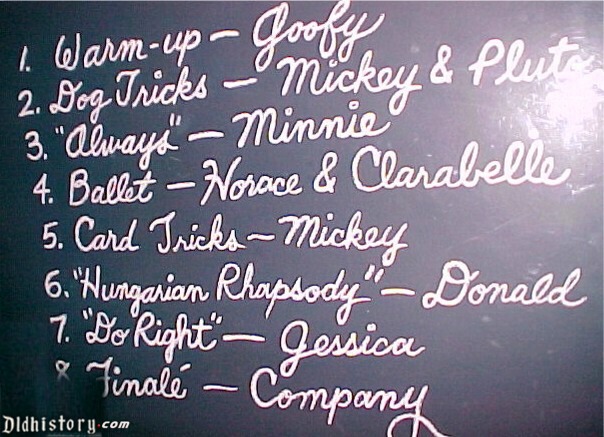 1. Warm-up — Goofy
2. Dog Tricks — Mickey & Pluto
3. "Always" — Minnie
4. Ballet — Horace & Clarabelle
5. Card Tricks — Mickey
6. "Hungarian Rhapsody" — Donald
7. "Do Right" — Jessica
8 Finalé — Company
Dldhistory.com